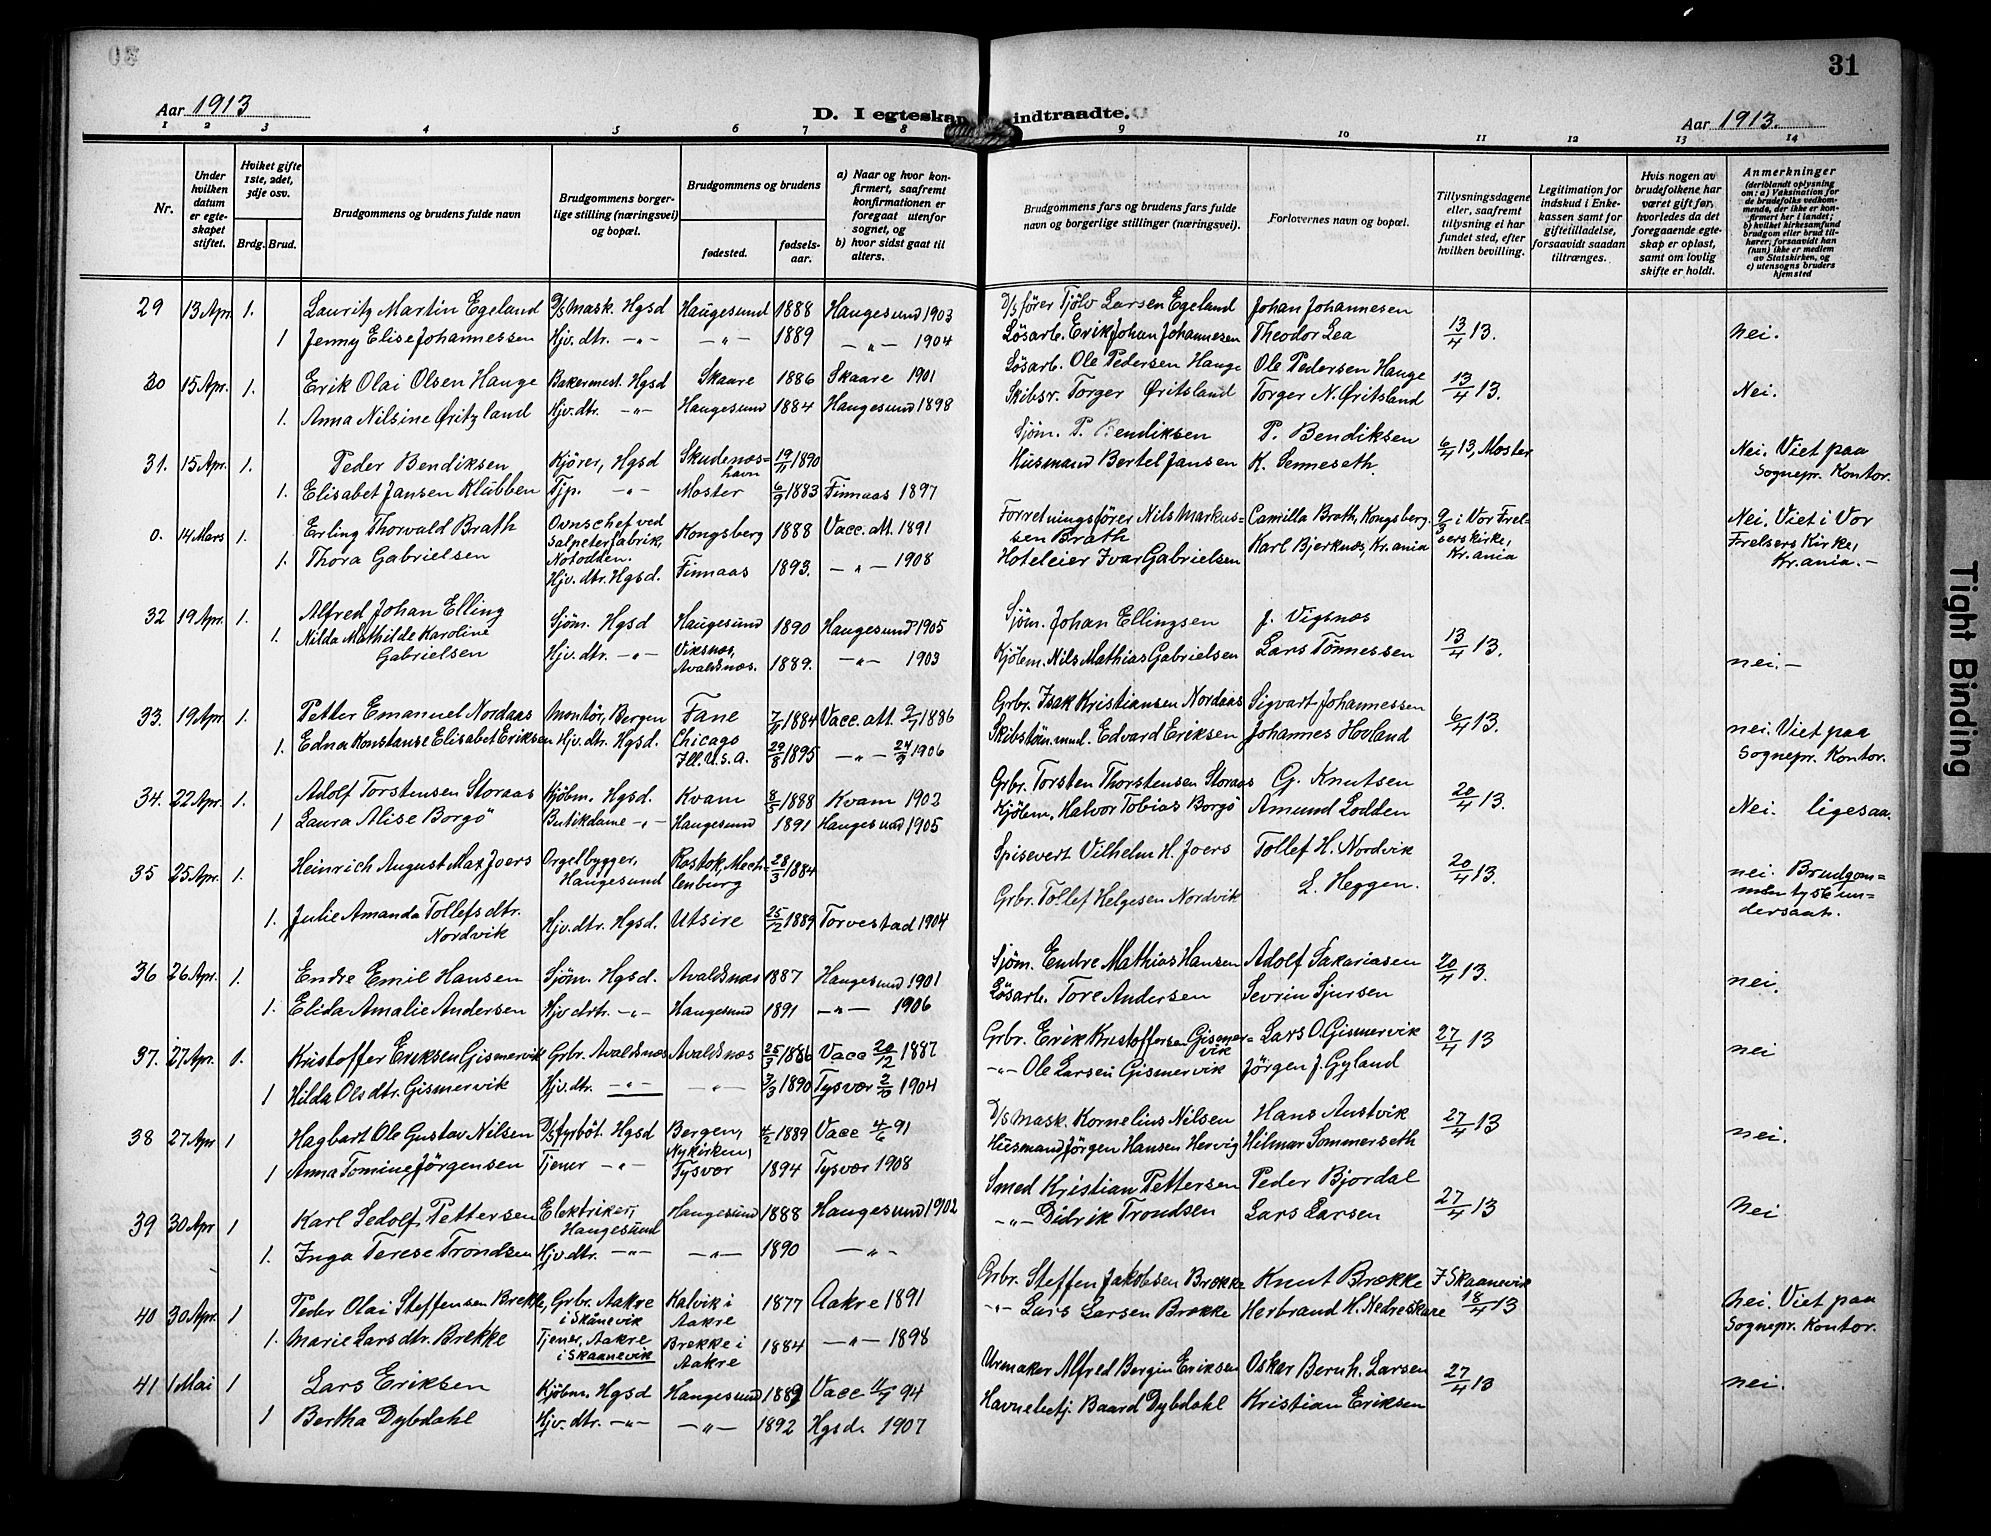 31
Aar 1913
D. I egteskap indtraadte.
Aar 1913.
1 2 3 4 5 6 7 8 9 10 11 12 13 14
Nr.
Under hvilken datum er egteskapet stiftet.
Hviket gifte 1ste, 2det, 3dje osv.
Brdg. Brud.
Brudgommens og brudens fulde navn
Brudgommens borgerlige stilling (næringsvei) og bopæl.
Brudgommens og brudens
fødested.
fødselsaar.
a) Naar og hvor konfirmert, saafremt konfirmationen er foregaat utenfor sognet, og
b) hvor sidst gaat til alters.
Brudgommens fars og brudens fars fulde navn og borgerlige stillinger (næringsvei).
Forlovernes navn og bopæl.
Tillysningsdagene eller, saafremt tillysning ei har fundet sted, efter hvilken bevilling.
Legitimation for indskud i Enkekassen samt for giftetilladelse, forsaavidt saadan tiltrænges.
Hvis nogen av brudefolkene har været gift før, hvorledes da det foregaaende egteskap er opløst, samt om lovlig skifte er holdt.
Anmerkninger
(deriblandt oplysning om: a) Vaksination for de brudefolks vedkommende, der ikke er konfirmert her i landet; b) hvilket kirkesamfund brudgom eller brud tilhører, forsaavidt han (hun) ikke er medlem av Statskirken, og c) utensogns bruders hjemsted
29 13 Apr. 1. Lauritz Martin Egeland D/s mask. Hgsd Haugesund 1888 Haugesund 1903 D/s fører Tjölv Larsen Egeland Johan Johannesen
1 Jenny Elise Johannessen Hjv. dtr. -"- -"- 1889 -"- 1904 Løsarb. Erik Johan Johannesen Theodor Lea 13/4 13. Nei.
30 15 Apr. 1. Erik Olai Olsen Hauge Bakermest. Hgsd Skaare 1886 Skaare 1901 Løsarb. Ole Pedersen Hauge Ole Pedersen Hauge
1. Anna Nilsine Øritzland Hjv. dtr. -"- Haugesund 1884 Haugesund 1898 Skibsr. Torger Øritsland Torger N. Øritsland 13/4 13. Nei.
31. 15 Apr. 1. Peder Bendiksen Kjører, Hgsd Skudenæshavn 19/11 1890 Sjøm. P. Bendiksen P. Bendiksen 6/4 13, Moster Nei. Viet paa
1. Elisabet Jansen Klubben Tjp. -"- Moster 6/9 1883 Finnaas 1897 Husmand Bertel Jansen K. Senneseth. Sognepr. Kontor.
0. 14 Mars 1. Erling Thorvald Brath Ovnschef ved Salpeterfabrik, Notodden. Kongsberg 1888 Vacc. att. 1891 Forretningsfører Nils Markussen Brath Camilla Brath, Kongsberg. 9/3 i Vor Frelserskirke, Kr.ania Nei. Viet i Vor Frelsers Kirke, Kr.ania.-
1. Thora Gabrielsen Hjv. dtr. Hgsd. Finnaas 1893. -"- 1908 Hoteleier Ivar Gabrielsen Karl Bjerknæs, Kr.ania
32 19 Apr. 1. Alfred Johan Elling Sjøm. Hgsd Haugesund 1890 Haugesund 1905 Sjøm. Johan Ellingsen J. Vigsnæs
1. Nilda Mathilde Karoline Gabrielsen Hjv. dtr. -"- Viksnæs, Avaldsnæs. 1889. -"- 1903 Kjølem. Nils Mathias Gabrielsen Lars Tönnessen 13/4 13. nei.-
33. 19 Apr 1. Petter Emanuel Nordaas Montör, Bergen Fane 7/11 1884 Vacc. att. 9/7 1886 Grbr. Isak Kristiansen Nordaas Sigvart Johannessen
1. Edna Konstanse Elisabet Eriksen Hjv. dtr. Hgsd. Chicago Ill. U.S.A. 29/8 1895 -"- 24/9 1906 Skibstöm.mand. Edvard Eriksen Johannes Hovland 6/4 13. nei. Viet paa Sognepr. Kontor.
34. 22 Apr. 1. Adolf Torstensen Storaas Kjøbm. Hgsd. Kvam 8/5 1888 Kvam 1902 Grbr. Torsten Thorstensen Storaas G. Knutsen
1 Laura Alise Borgö Butikdame -"- Haugesund 1891 Haugesund 1905 Kjölem. Halvor Tobias Borgö Amund Lodden 20/4 13. Nei. ligesaa.
35 25 Apr. 1. Heinrich August Max Joers Orgelbygger, Haugesund Rostok, Mechlenburg 28/3 1884 Spisevert Vilhelm H. Joers Tollef H. Nordvik
1. Julie Amanda Tollefsdtr. Nordvik Hjv. dtr. Hgsd. Utsire 25/12 1889 Torvestad 1904 Grbr. Tollef Helgesen Nordvik L. Heggen. 20/4 13. nei. Brudgommen tysk undersaat.
36 26 Apr. 1. Endre Emil Hansen Sjøm. Hgsd. Avaldsnæs 1887 Haugesund 1901 Sjøm. Endre Mathias Hansen Adolf Sakariasen
1. Elida Amalie Andersen Hjv. dtr. -"- Haugesund 1891 -"- 1906 Løsarb. Tore Andersen Sevrin Sjursen 20/4 13. nei.
37. 27 Apr. 0. Kristoffer Eriksen Gismervik Grbr. Avaldsnæs Avaldsnæs 25/3 1886 Vacc 20/12 1887 Grbr. Erik Kristoffersen Gismervik Lars O. Gismervik 27/4 13 nei
1 Hilda Olsdtr. Gismervik Hjv. dtr. -"- -"- 3/3 1890 Tysvær 2/10 1904 -"- Ole Larsen Gismervik Jørgen J. Gyland
38 27 Apr 1 Hagbart Ole Gustav Nilsen D/s fyrböt. Hgsd Bergen, Nykirken, 4/2 1889 Vacc 4/6 91 D/s mask. Kornelius Nilsen Hans Austvik
1 Anna Tomine Jörgensen Tjener -"- Tysvær 1894 Tysvær 1908 Husmand Jörgen Hansen Hervig Hilmar Sommerseth 27/4 13 nei.
39 30 Apr 1 Karl Sedolf Pettersen Elektriker, Haugesund Haugesund 1888 Haugesund 1902 Smed Kristian Pettersen Peder Bjordal
1. Inga Terese Trondsen Hjv. dtr. -"- -"- 1890 -"- -"- Didrik Trondsen Lars Larsen 27/4 13 Nei.
40 30 Apr. 1 Peder Olai Steffensen Brekke, Grbr. Aakre i Skånevik Kalvik i Aakre 1877 Aakre 1891 Grbr. Steffen Jakobsen Brække Knut Brække I Skaanevik
1. Marie Larsdtr. Brekke Tjener, Aakre i Skaanevik Brekke i Aakre 1884 -"- 1898 -"- Lars Larsen Brække Herbrand K. Nedreskare 18/4 13 Nei. Viet paa Sognepr. Kontor.
41 1 Mai 1 Lars Eriksen Kjøbm. Hgsd Haugesund 1889 Vacc 11/7 94 Urmaker Alfred Bergin Eriksen Oskar Bernh. Larsen
1 Bertha Dybdahl Hjv. dtr. -"- -"- 1892 Hgsd. 1907 Havnebetj. Baard Dybdahl Kristian Eriksen 27/4 13 nei.
Tight Binding